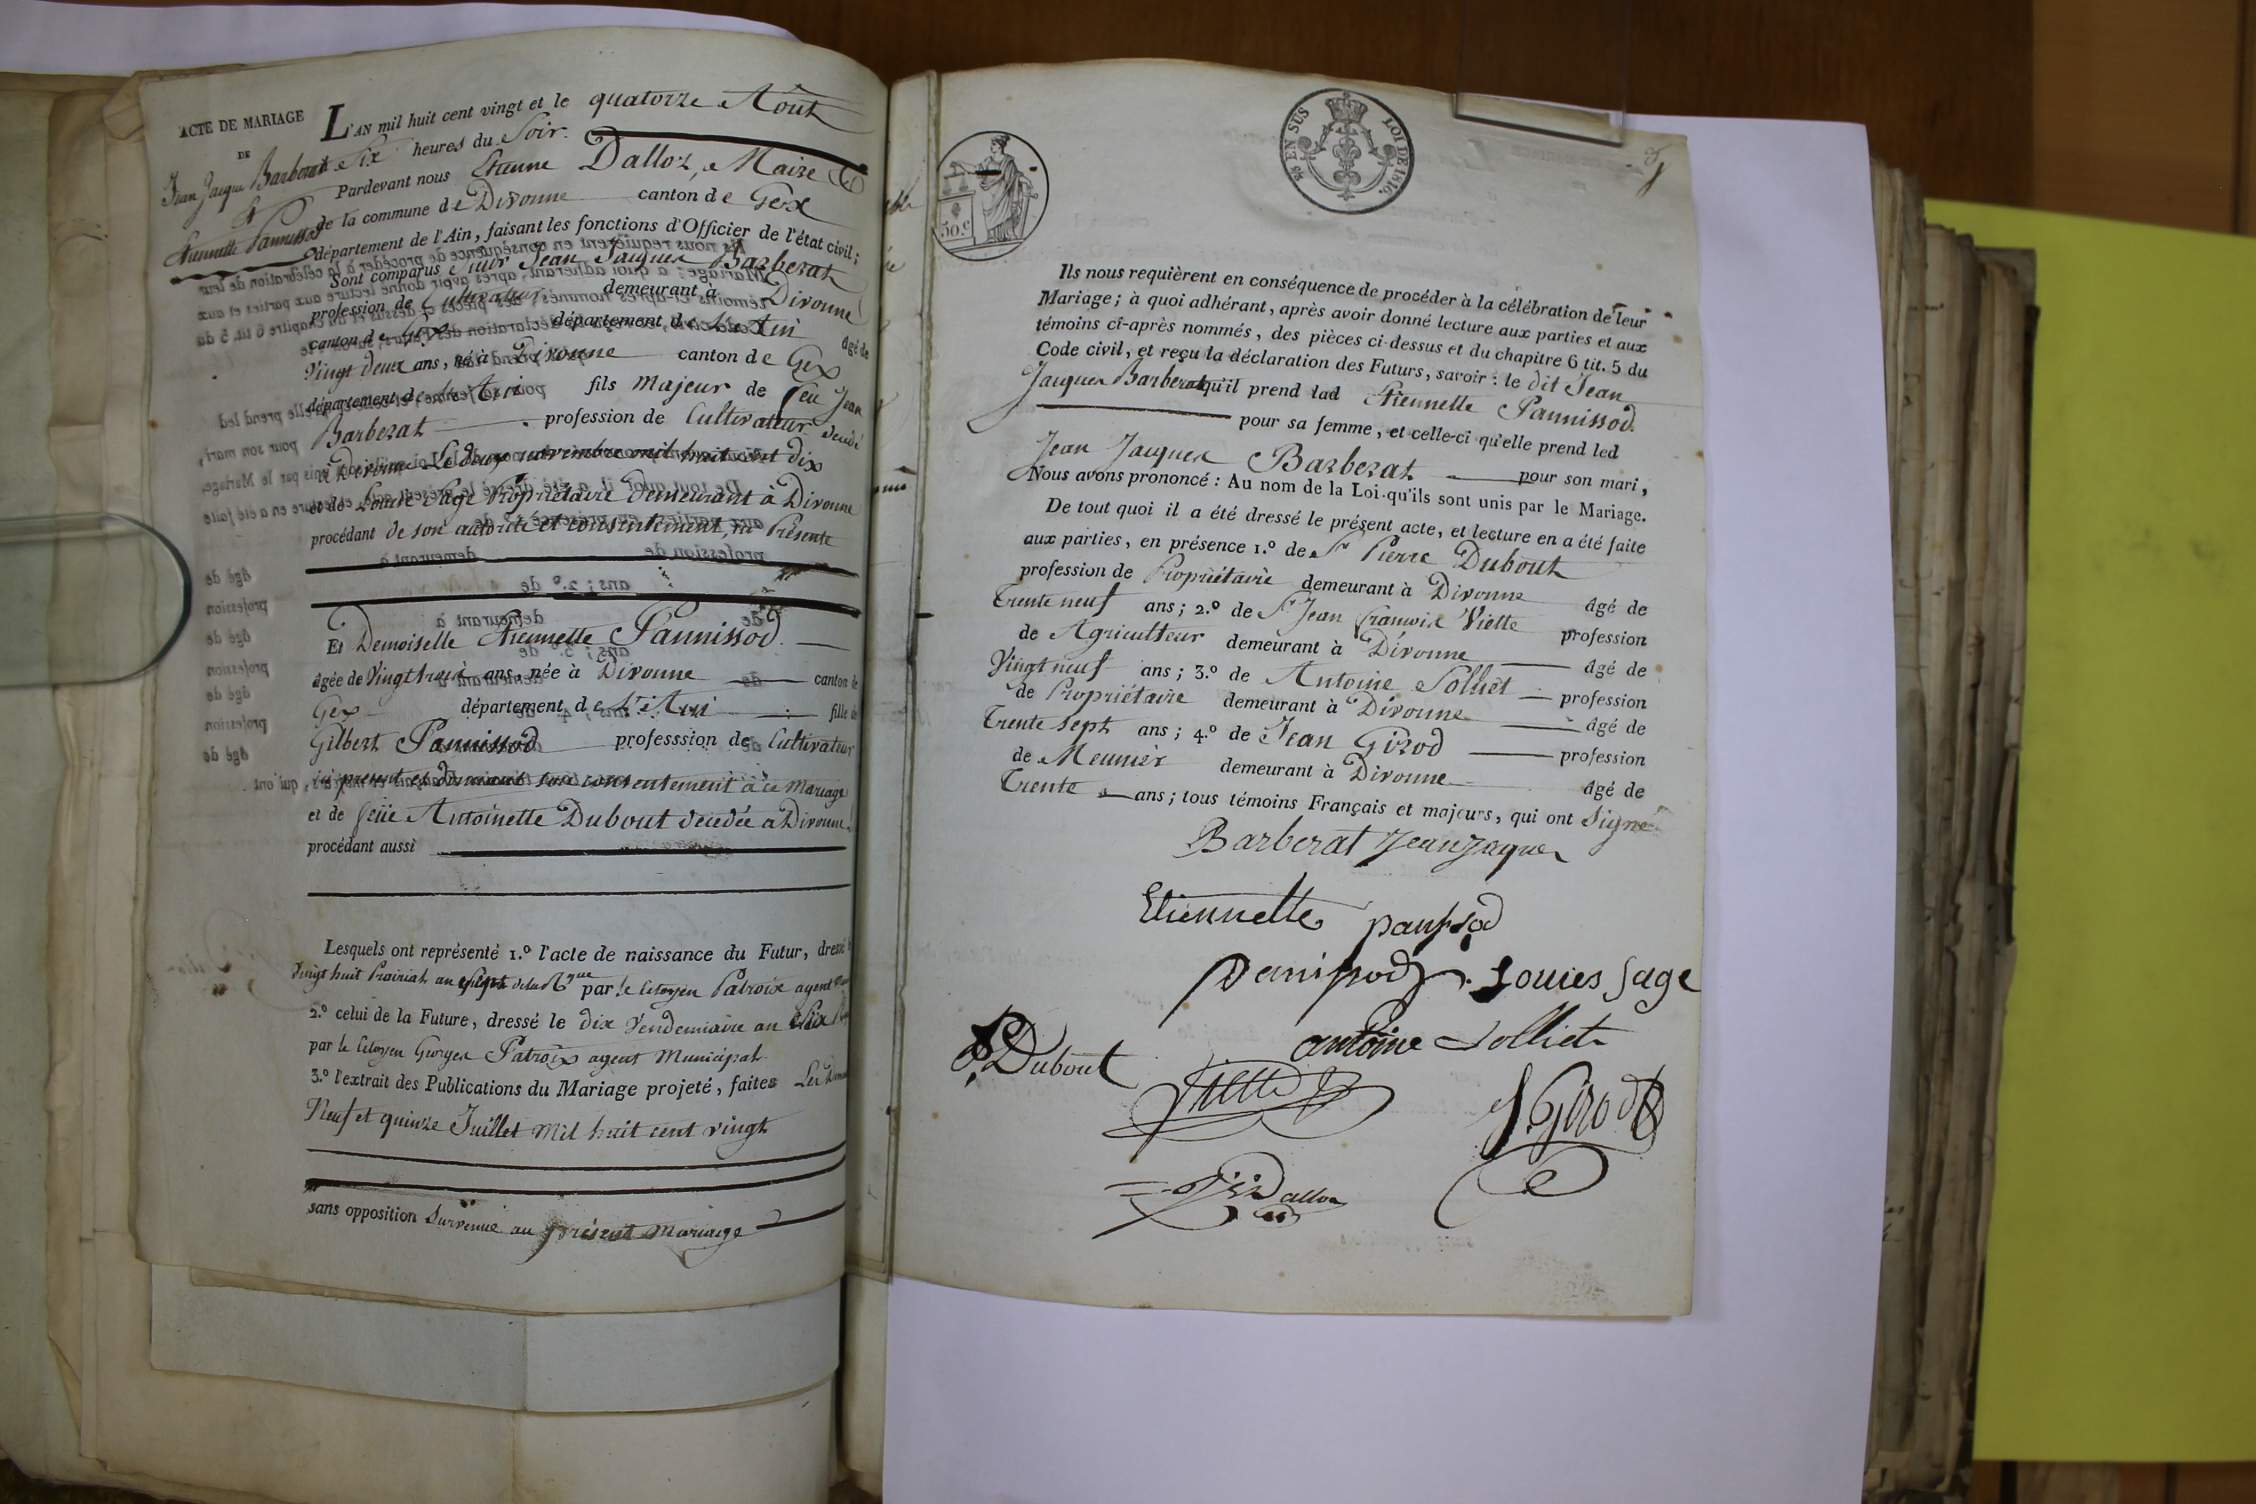 ACTE DE MARIAGE
DE
Jean Jacques Barberat
et
Etiennette Pannissod
L'AN mil huit cent vingt et le quatorze Août
Six heures du Soir.
Pardevant nous Etienne Dalloz, Maire
de la commune de Divonne canton de Gex
département de l'Ain, faisant les fonctions d'Officier de l'état civil;
Sont comparus Sieur Jean Jacques Barberat
profession de Cultivateur demeurant à Divonne
canton de Gex département de L'Ain âgé de
Vingt deux ans, né à Divonne canton de Gex
département de L'Ain fils majeur de feu Jean
Barberat profession de Cultivateur décédé
à Divonne Le douze novembre mil huit cent dix
et de Louise Sage Propriétaire demeurant à Divonne
procédant de son autorité et consentement, ici Présente
Et Demoiselle Etiennette Pannissod
âgée de Vingt trois ans, née à Divonne canton de
Gex département de L'Ain fille de
Gilbert Pannissod professsion de Cultivateur
ici présent et donnant son consentement à ce mariage
et de feüe Antoinette Dubout décédée à Divonne
procédant aussi
Lesquels ont représenté 1.º l'acte de naissance du Futur, dressé le
vingt huit Prairial an Sept de la Rque par le Citoyen Patroix agent
2.º celui de la Future, dressé le dix Vendemiaire an
par le Citoyen Georges Patroix agent Municipal
3.º l'extrait des Publications du Mariage projeté, faites Les
Neuf et quinze Juillet Mil huit cent vingt
sans opposition Survenue au présent Mariage
50.c
EN SUS
LOI DE 1816.
Ils nous requièrent en conséquence de procéder à la célébration de leur
Mariage; à quoi adhérant, après avoir donné lecture aux parties et aux
témoins ci-après nommés, des pièces ci-dessus et du chapitre 6 tit. 5 du
Code civil, et reçu la déclaration des Futurs, savoir: le dit Jean
Jacques Barberat qu'il prend lad Etiennette Pannissod
pour sa femme, et celle-ci qu'elle prend led
Jean Jacques Barberat pour son mari,
Nous avons prononcé: Au nom de la Loi qu'ils sont unis par le Mariage.
De tout quoi il a été dressé le présent acte, et lecture en a été faite
aux parties, en présence 1.º de Sr Pierre Dubout
profession de Propriétaire demeurant à Divonne âgé de
Trente neuf ans; 2.º de Sr Jean François Viette profession
de Agriculteur demeurant à Divonne âgé de
Vingt neuf ans; 3.º de Antoine Solliet profession
de Propriétaire demeurant à Divonne âgé de
Trente Sept ans; 4.º de Jean Girod profession
de Meunier demeurant à Divonne âgé de
Trente ans; tous témoins Français et majeurs, qui ont Signé
Barberat Jean Jaques
Etiennette panisod
Panissod Louies Sage
P. Dubout antoine Solliet
Viette J. Girod
Dalloz